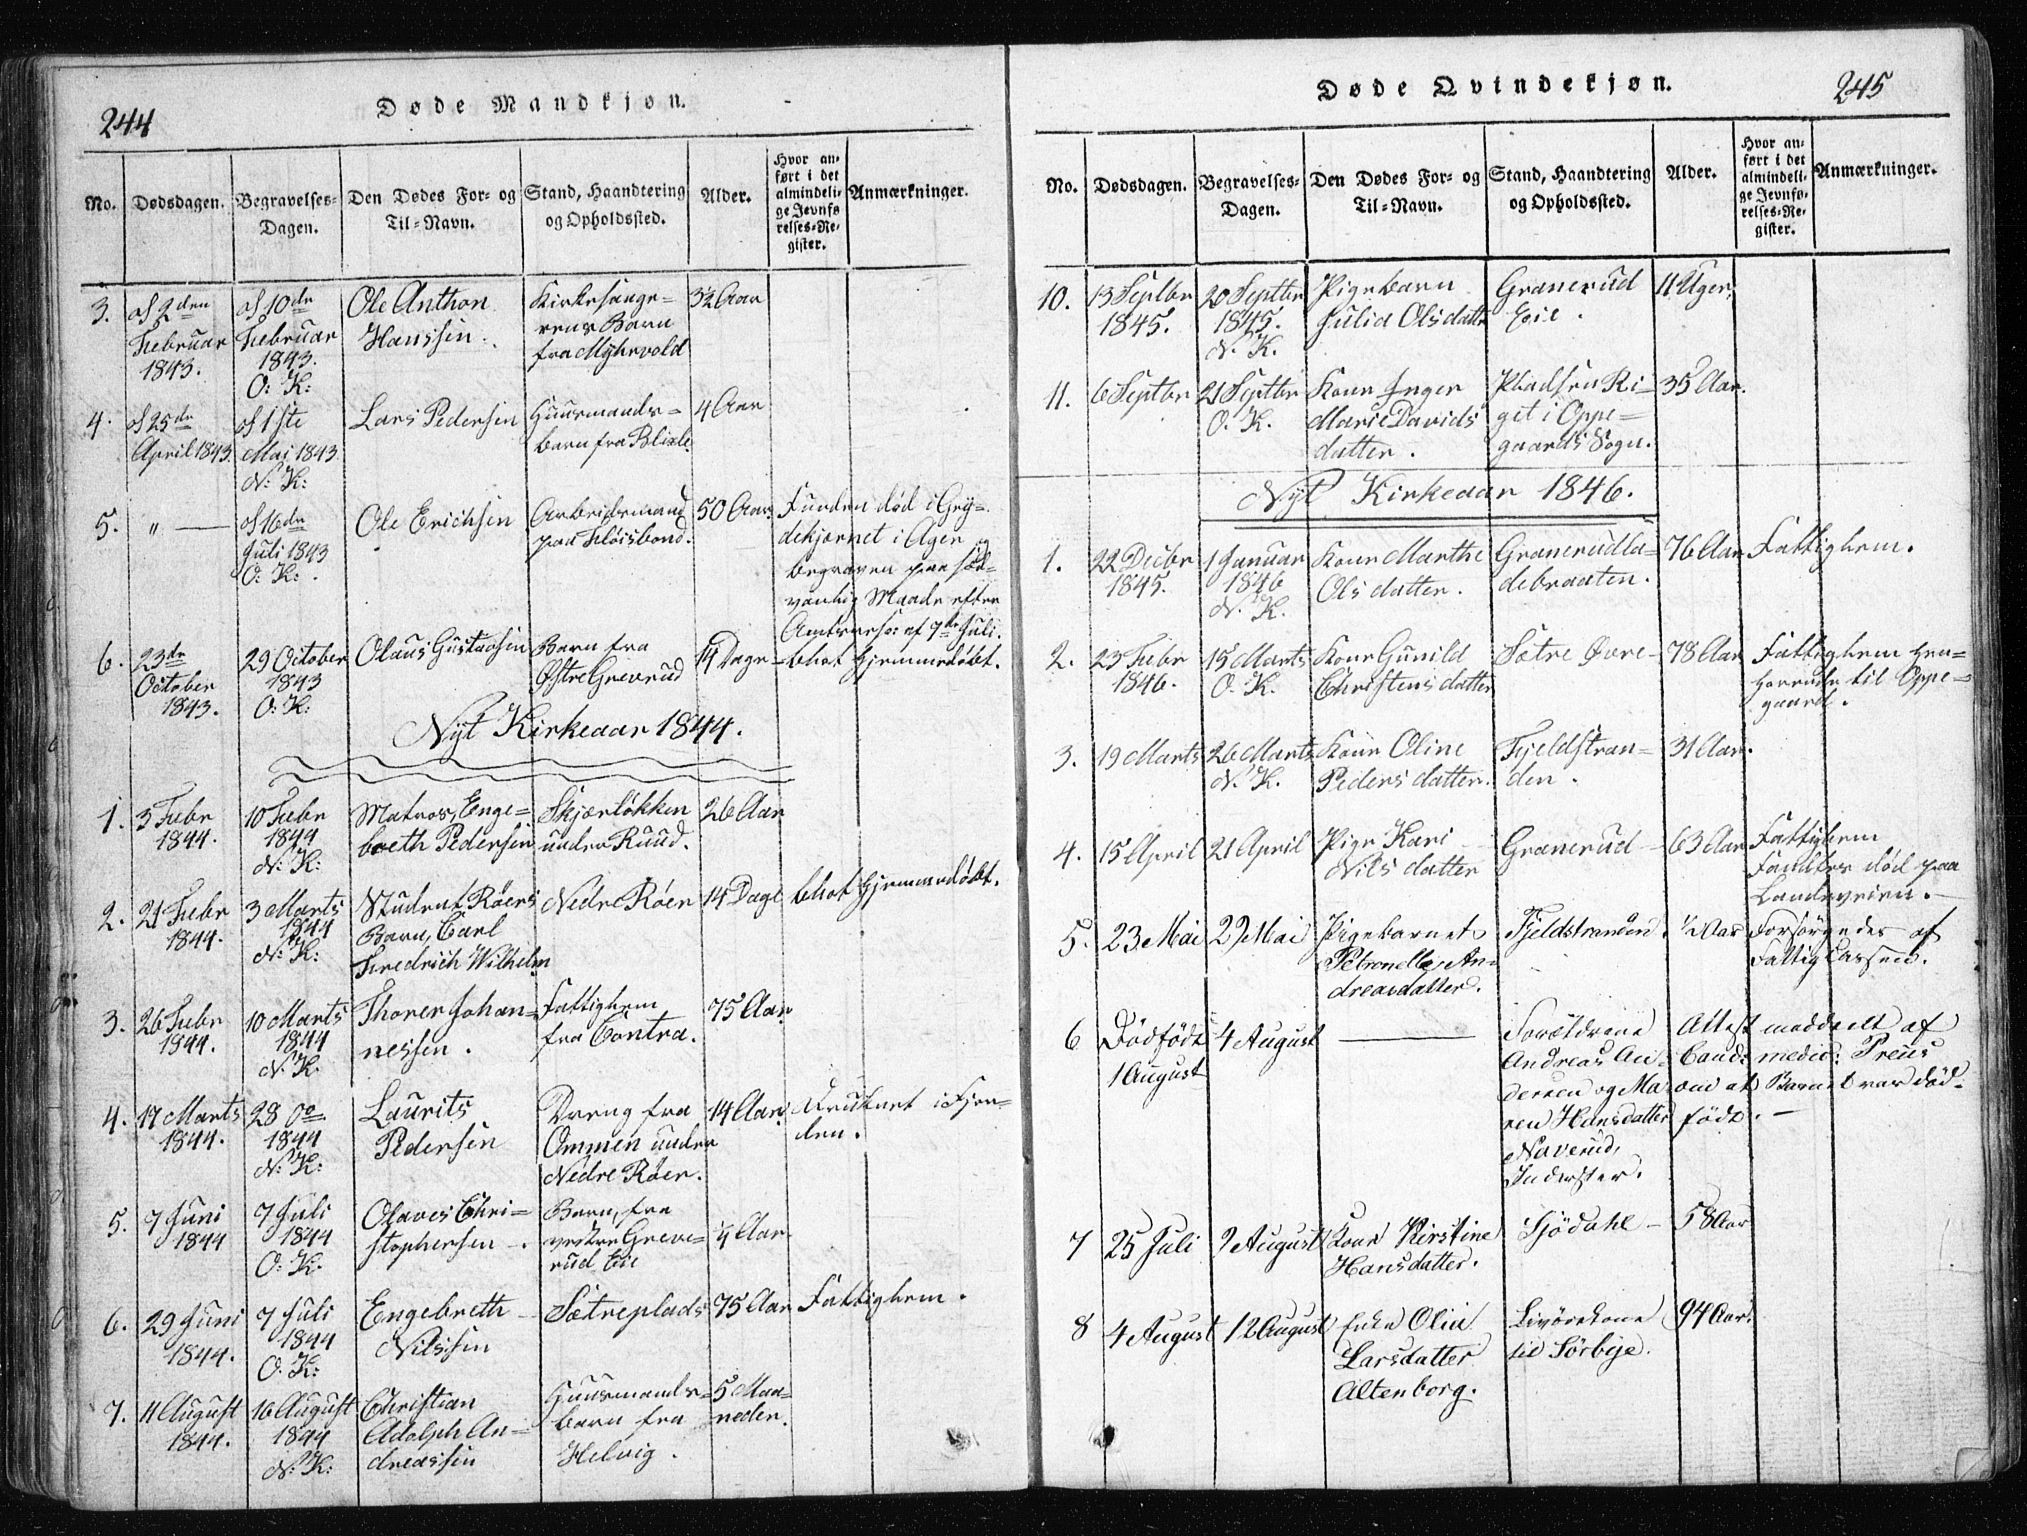 244
Døde Mandkjøn.
No.
Dødsdagen.
Begravelses-
Dagen.
Den Dødes For- og
Til-Navn.
Stand, Haandtering
og Opholdssted.
Alder.
Hvor an-
ført i det
almindeli-
ge Jevnfø-
relses-Re-
gister.
Anmærkninger.
3.
d 2den
Februar
1843.
d 10de
Februar
1843.
O: K:
Ole Anthon
Hanssen.
Kirkesange-
rens Barn
fra Myhrvold
3½ Aar
4.
d 25de
April 1843.
d 1ste
Mai 1843
N: K:
Lars Pedersen
Huusmands-
barn fra Blixle
4 Aar
5.
" —
d 16de
Juli 1843
O: K:
Ole Erichsen
Arbeidsmand
paa Fløisbond.
50 Aar.
Funden død i Gry-
dekjernet i Ager
begraven paa sæd-
vanlig Maade efter
af 7de Juli.
6.
23de
October
1843.
29 October
1843
O: K:
Olaus Gustavsen
Barn fra
Østre Greverud
14 Dage
blot hjemmedøbt.
Nyt Kirkeaar 1844.
1.
3 Febr
1844.
10 Febr
1844
N: K:
Matros, Enge-
breth Pedersen
Skjærløkken
under Ruud.
26 Aar
2.
21 Febr
1844.
3 Marts
1844
N: K:
Student Røers
Barn, Carl
Fredrich Wilhelm
Nedre Røer
14 Dage
blot hjemmedøbt.
3.
26 Febr
1844.
10 Marts
1844
N: K.
Thorer Johan-
nessen.
Fattiglem
fra Contra.
75 Aar
4.
17 Marts
1844.
28 do
1844
N: K:
Laurits
Pedersen
Dreng fra
Ommen under
Nedre Røer.
14 Aar.
Druknet i Fjor-
den.
5.
7 Juni
1844
7 Juli
1844
O: K.
Olaves Chri-
stophersen
Barn, fra
vestre Greve-
rud Eie
¼ Aar.
6.
29 Juni
1844.
7 Juli
1844
O: K:
Engebreth
Nilssen
Sætreplads
75 Aar
Fattiglem.
7.
11 August
1844.
16 August
1844
N: K:
Christian
Adolph An-
dreassen
Huusmands-
barn fra
Helvig.
5 Maa-
neder.
Døde Qvindekjøn.
245
No.
Dødsdagen.
Begravelses-
Dagen.
Den Dødes For- og
Til-Navn.
Stand, Haandtering
og Opholdssted.
Alder.
Hvor an-
ført i det
almindeli-
ge Jevnfø-
relses-Re-
gister.
Anmærkninger.
10.
13 Septbr
1845.
20 Septbr
1845.
N. K.
Pigebarn
Julia Olsdatter
Granerud
Eie.
11 Uger,
11.
6 Septbr
21 Septbr
O. K.
Kone Inger
Marie Davids
datter.
Pladsen Ri-
get i Oppe-
gaards Sogn.
35 Aar.
Nyt Kirkeaar 1846.
1.
22 Decbr
1845.
1 Januar
1846
N. K.
Kone Marthe
Olsdatter.
Granerudla-
debraaten.
76 Aar
Fattiglem.
2.
23 Febr
1846.
15 Marts
O. K.
Kone Gunild
Christensdatter
Sætre Øvre
78 Aar
Fattiglem hen-
hørende til Oppe-
gaard.
3.
19 Marts
26 Marts
N. K.
Kone Oline
Pedersdatter.
Fjeldstran-
den.
31 Aar.
4.
15 April
21 April
Pige Kari
Nilsdatter
Granerud
63 Aar
Fattiglem
Fandtes død paa
Landeveien.
5.
23 Mai
29 Mai
Pigebarnet
Petronelle An-
dreasdatter.
Fjeldstranden.
½ Aar
Forsørgedes af
Fattigkassen.
6
Dødfødt
1 August
4 August
—
Forældrene
Andreas An-
dersen og Ma-
ren Hansdatter
Naverud,
Inderster.
Attest meddeelt af
Cand: medic: Preus
om at Barnet var død-
født.
7
25 Juli
2 August
Kone Kirstine
Hansdatter.
Sjödahl
58 Aar
8
4 August
12 August
Enke Olia
Larsdatter
Altenborg.
Livørekone
til Sørbye.
94 Aar.